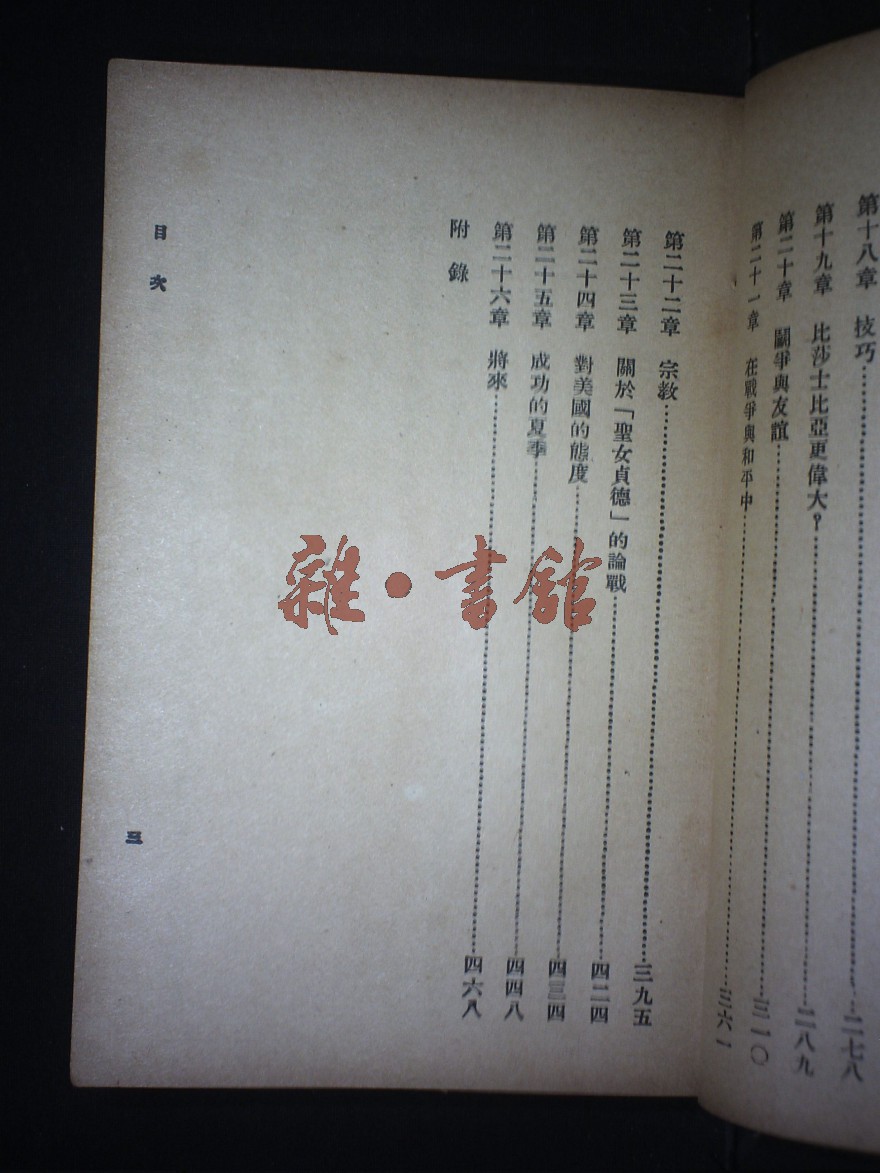 第十八章 技巧……………二七八
第十九章 比莎士比亞更偉大？……………二八九
第二十章 鬭爭與友誼……………三一〇
第二十一章 在戰爭與和平中……………三六一
第二十二章 宗教……………三九五
第二十三章 關於「聖女貞德」的論戰……………四二四
第二十四章 對美國的態度……………四三四
第二十五章 成功的夏季……………四四八
第二十六章 將來……………四六八
附錄
目次
三
雜·書館